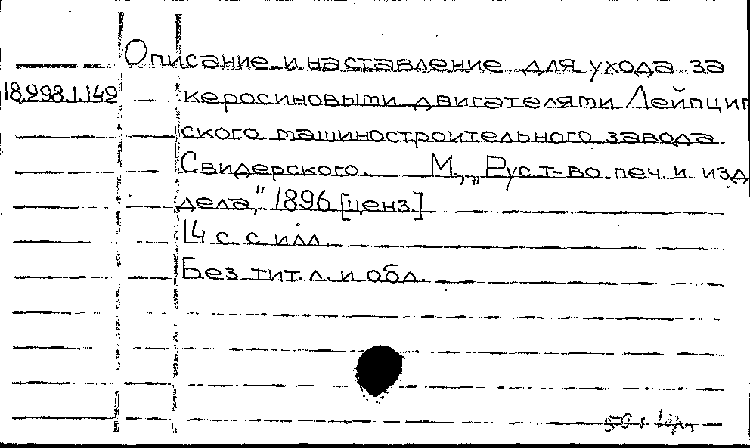 Описание и наставление для ухода за
18.998.1.149 керосиновыми двигателями Лейпциг
ского машиностроительного завода
Свидерского. М., „Рус. т-во печ. и изд
дела," 1896 [ценз.]
14 с. с илл.
Без тит. л. и обл.